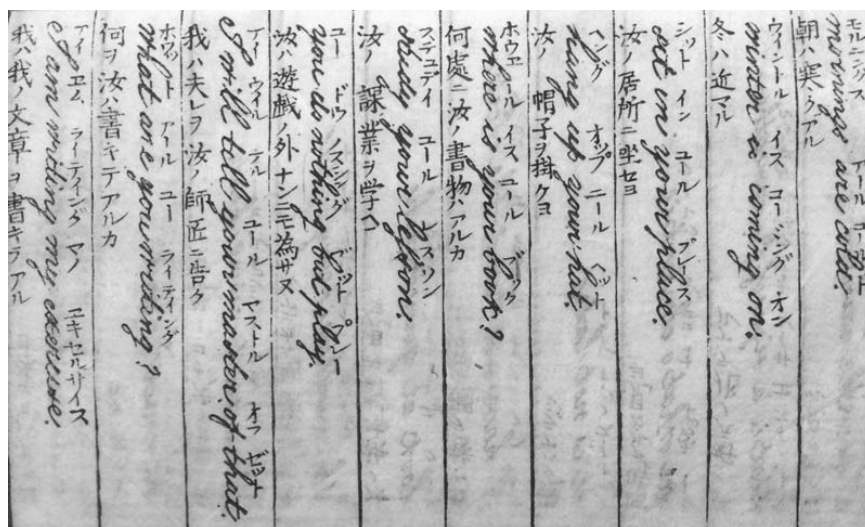 モルニングス アール コールド
mornings are cold.
朝ハ寒クアル
ウィントル イス コーミング オン
winter is coming on.
冬ハ近マル
シット イン ユール プレース
set in your place.
汝ノ居所ニ坐セヨ
ヘング オップ ユール ヘット
hung up your hat.
汝ノ帽子ヲ掛クヨ
ホウエール イス ユール ブック
where is your book?
何處ニ汝ノ書物ハアルカ
スチュデイ ユール レスソン
study your lesson.
汝ノ課業ヲ学ヘ
ユー ドウ ノスシング バット プレー
you do nothing but play.
汝ハ遊戯ノ外ナンニモ為サヌ
アイ ウイル テル ユール マストル オフ ゼット
I will tell your master of that.
我ハ夫レヲ汝ノ師匠ニ告ク
ホウット アール ユー ライティング
what are you writing?
何ヲ汝ハ書キテアルカ
アイ エム ライティング マイ エキセルサイス
I am writing my exercise.
我ハ我ノ文章ヲ書キテアル